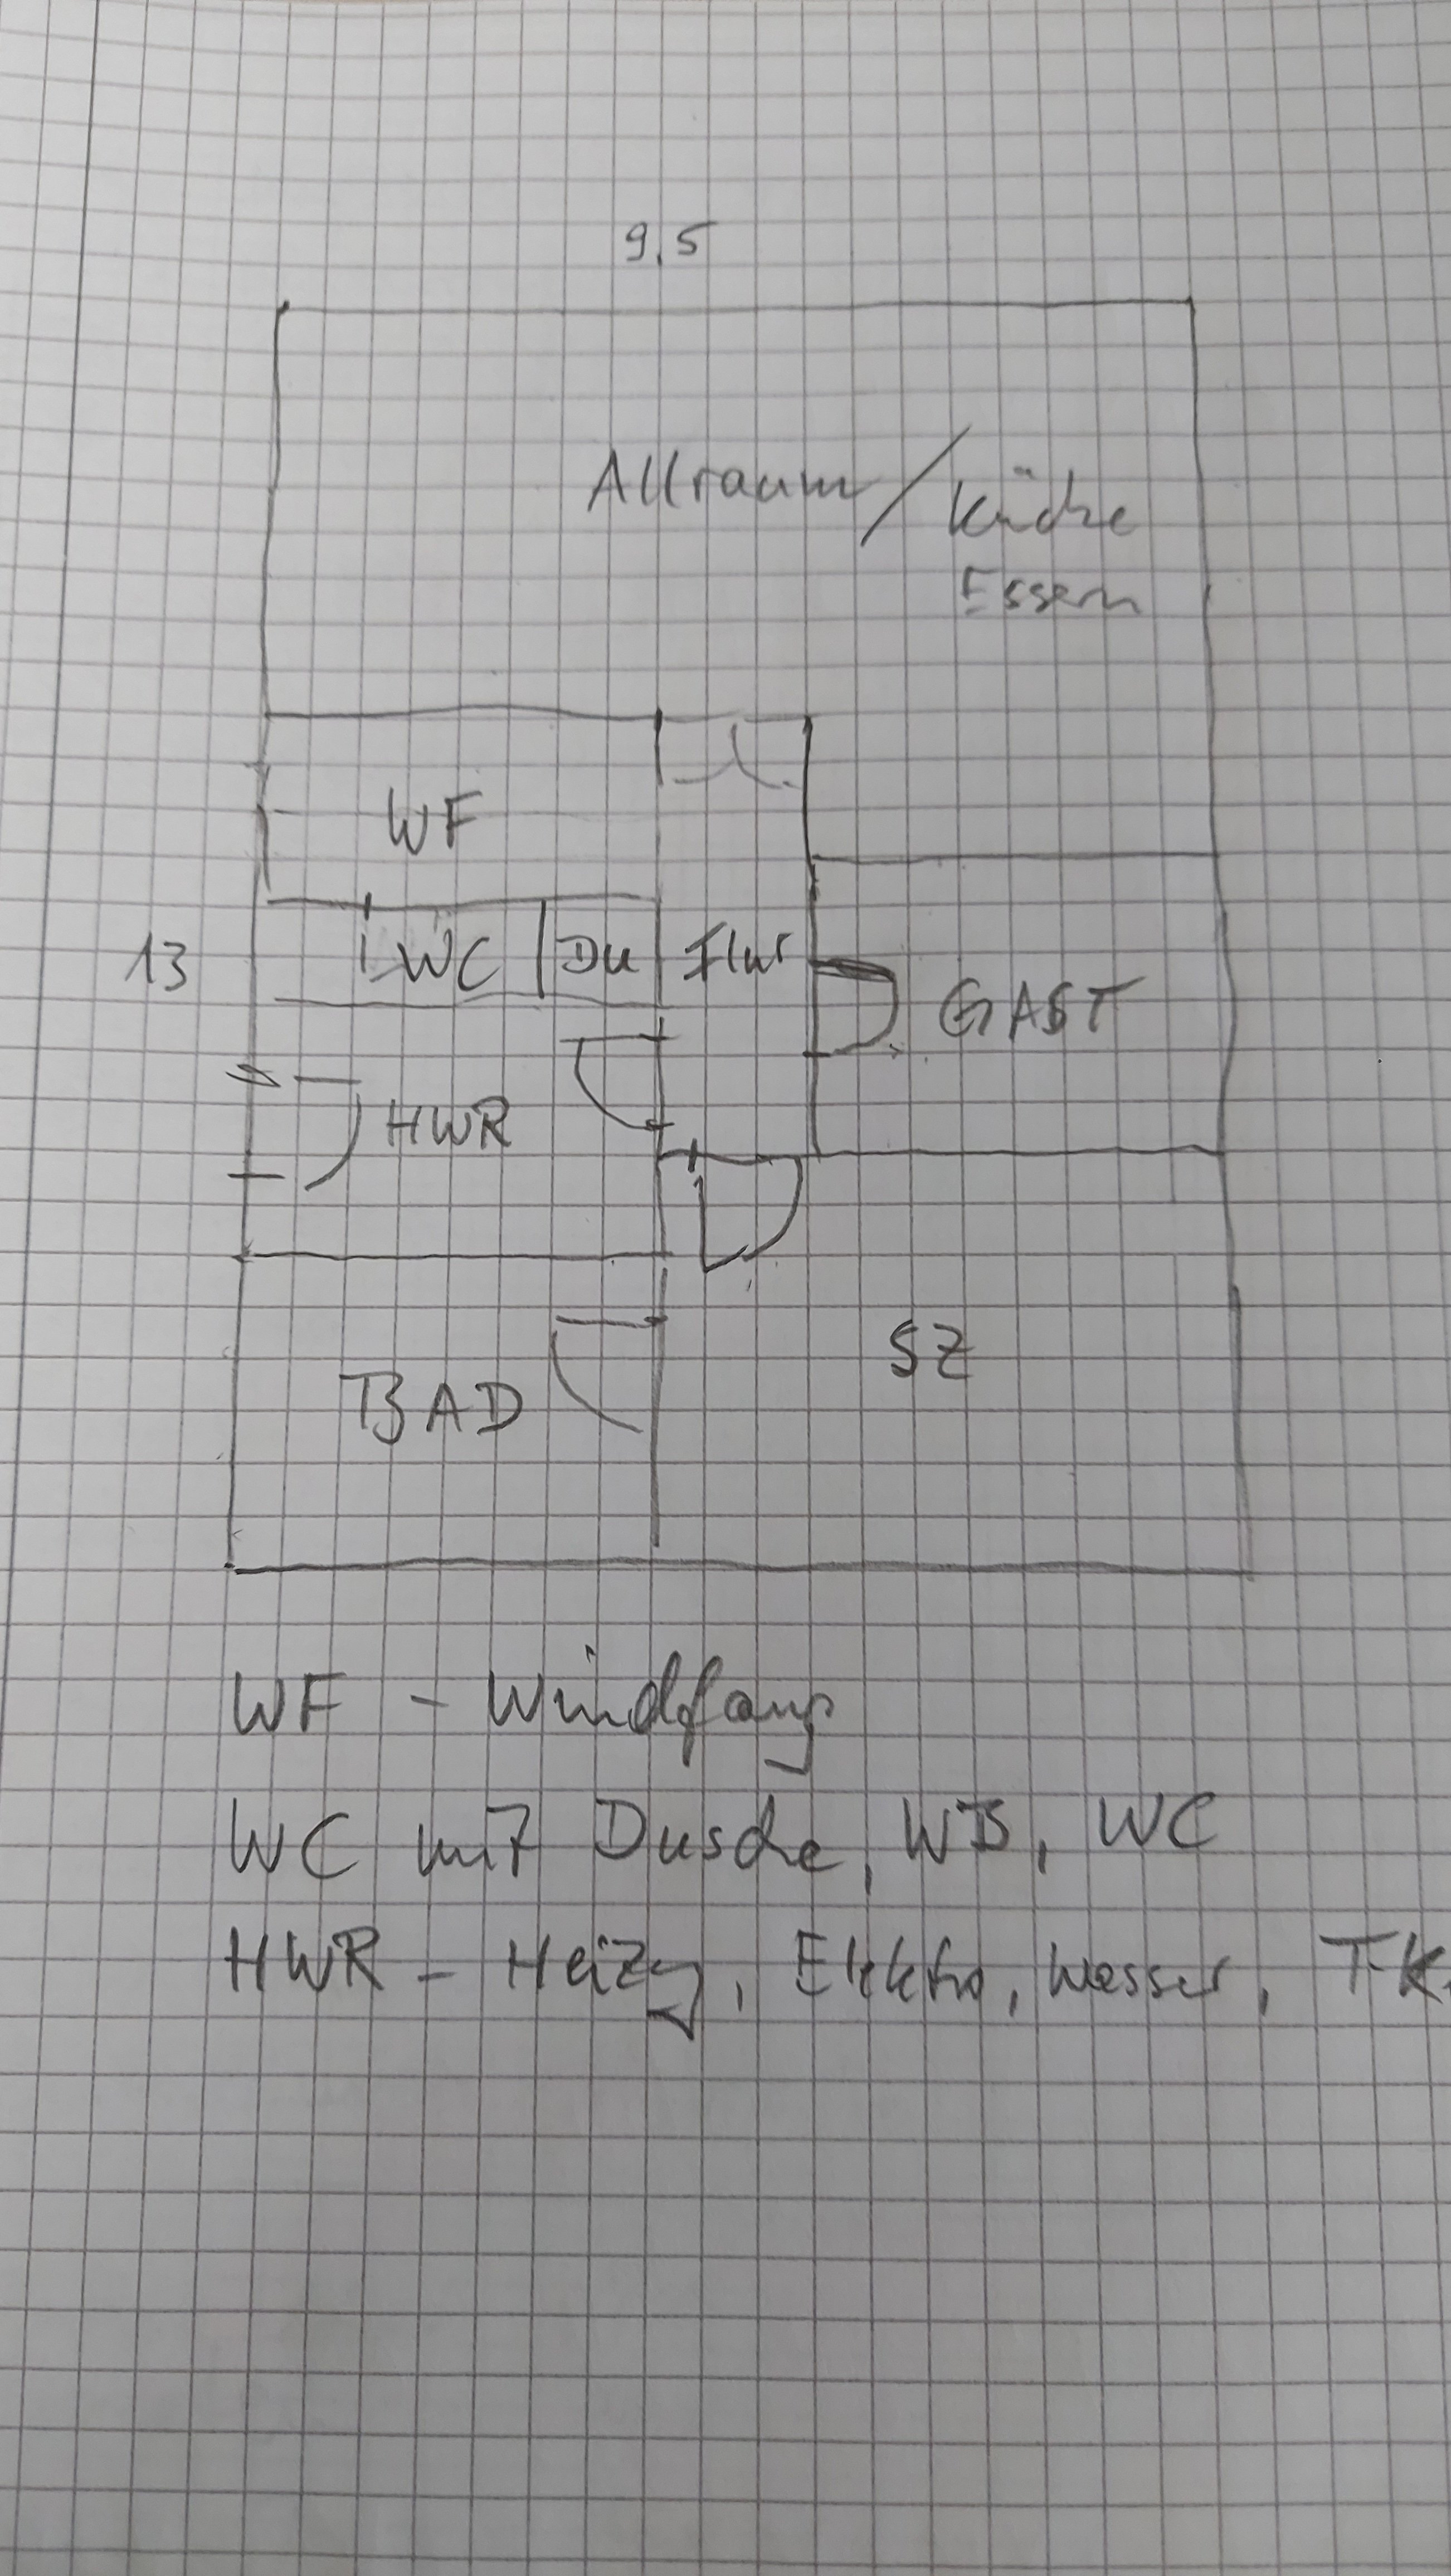 9,5
Allraum / Küche
Essen
WF
13
WC | Du Flur
GAST
HWR
SZ
BAD
WF - Windfang
WC mit Dusche, WB, WC
HWR - Heizg, Elektro, Wasser, TK